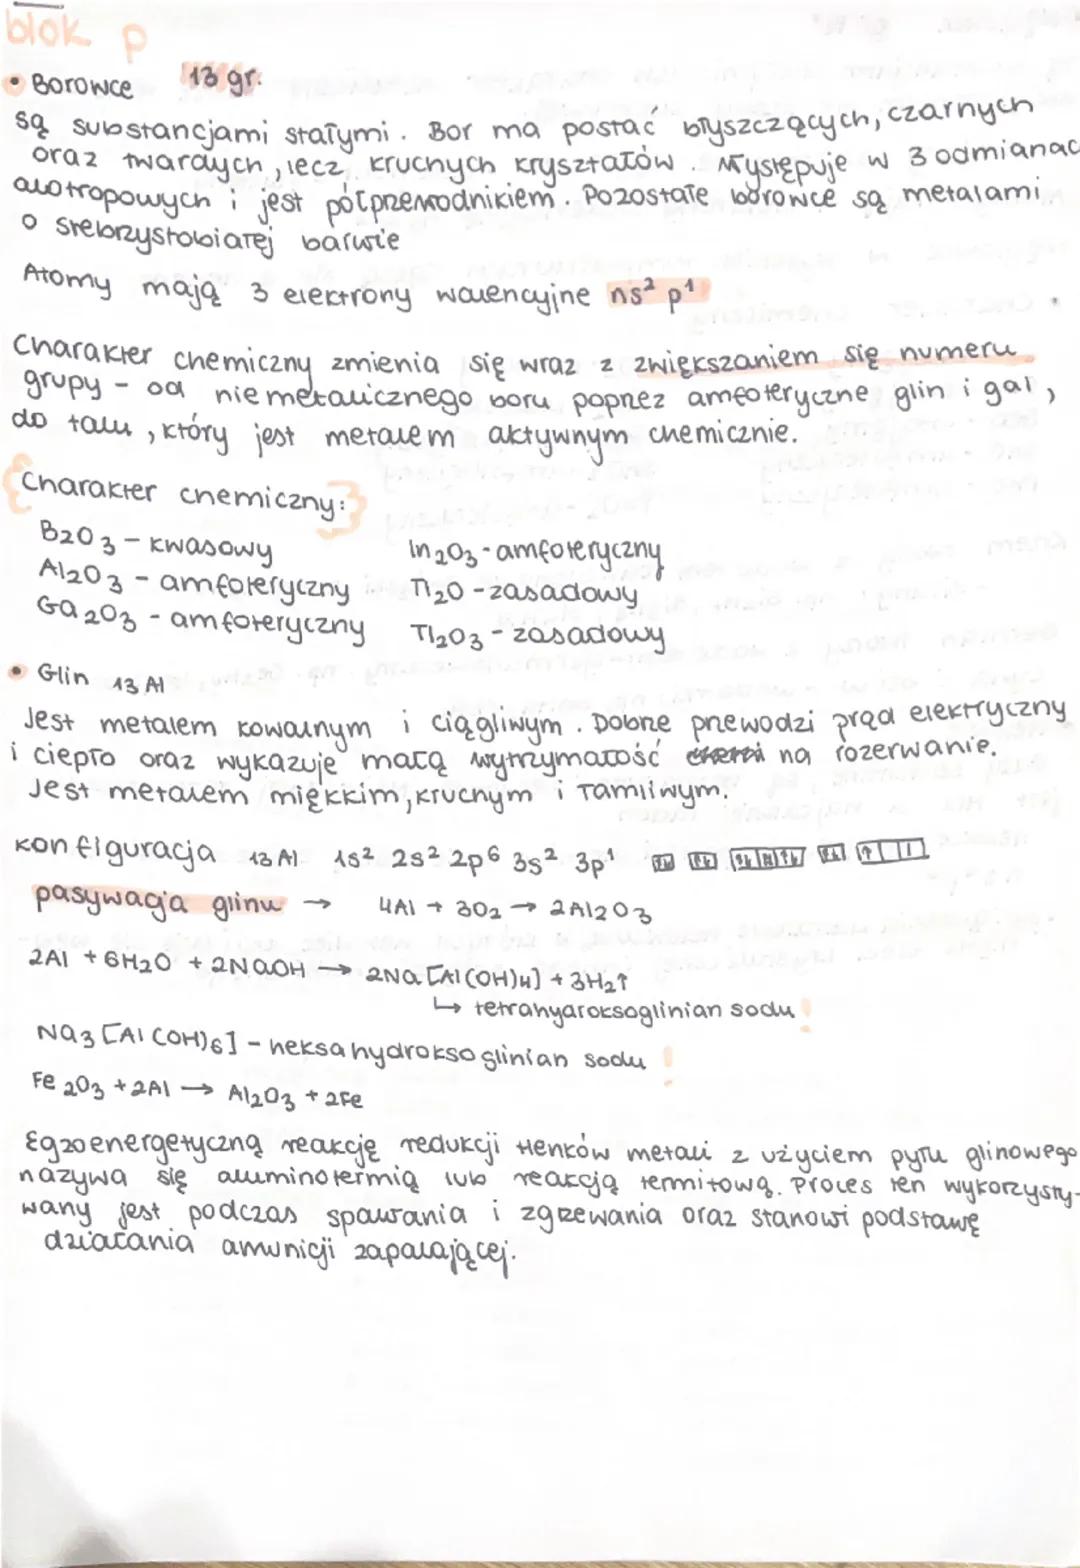 blok p
• Borowce 13 gr.
są substancjami stałymi. Bor ma postać błyszczących, czarnych
oraz twardych, lecz kruchych kryształów. Występuje w 3 odmianac
alotropowych i jest półprzewodnikiem. Pozostałe borowce są metalami
o srebrzystobiałej barwie
Atomy mają 3 elektrony walencyjne ns² p¹
Charakter chemiczny zmienia się wraz z zwiększaniem się numeru
grupy - od niemetalicznego boru poprzez amfoteryczne glin i gal,
do talu, który jest metalem aktywnym chemicznie.
Charakter chemiczny:
B₂O₃ - kwasowy In₂O₃ - amfoteryczny
Al₂O₃ - amfoteryczny Tl₂O - zasadowy
Ga₂O₃ - amfoteryczny Tl₂O₃ - zasadowy
• Glin ₁₃Al
Jest metalem kowalnym i ciągliwym. Dobrze przewodzi prąd elektryczny
i ciepło oraz wykazuje małą wytrzymałość na rozerwanie.
Jest metalem miękkim, kruchym i łamliwym.
konfiguracja ₁₃Al 1s² 2s² 2p⁶ 3s² 3p¹
pasywacja glinu → 4Al + 3O₂ → 2Al₂O₃
2Al + 6H₂O + 2NaOH → 2Na[Al(OH)₄] + 3H₂↑
↳ tetrahydroksoglinian sodu!
Na₃[Al(OH)₆] - heksahydroksoglinian sodu!
Fe₂O₃ + 2Al → Al₂O₃ + 2Fe
Egzoenergetyczną reakcję redukcji tlenków metali z użyciem pyłu glinowego
nazywa się aluminotermią lub reakcją termitową. Proces ten wykorzysty-
wany jest podczas spawania i zgrzewania oraz stanowi podstawę
działania amunicji zapalającej.